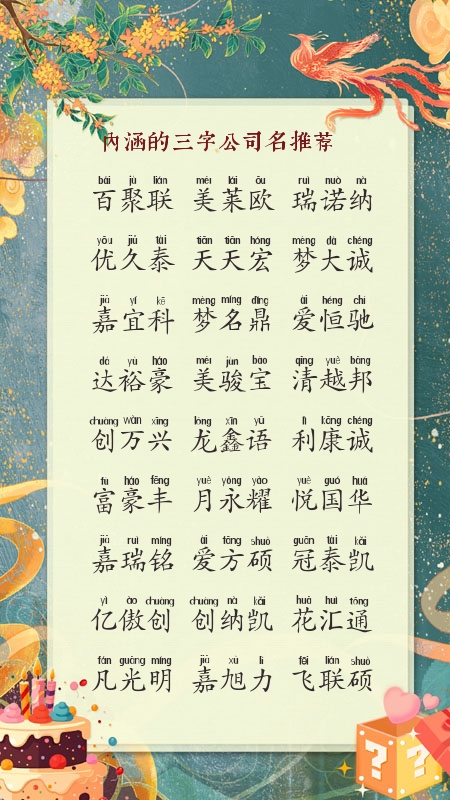 内涵的三字公司名推荐
bǎi jù lián měi lái ōu ruì nuò nà
百聚联 美莱欧 瑞诺纳
yōu jiǔ tài tiān tiān hóng mèng dà chéng
优久泰 天天宏 梦大诚
jiā yí kē mèng míng dǐng ài héng chí
嘉宜科 梦名鼎 爱恒驰
dá yù háo měi jùn bǎo qīng yuè bāng
达裕豪 美骏宝 清越邦
chuàng wàn xīng lóng xīn yǔ lì kāng chéng
创万兴 龙鑫语 利康诚
fù háo fēng yuè yǒng yào yuè guó huá
富豪丰 月永耀 悦国华
jiā ruì míng ài fāng shuò guān tài kǎi
嘉瑞铭 爱方硕 冠泰凯
yì ào chuàng chuàng nà kǎi huā huì tōng
亿傲创 创纳凯 花汇通
fán guāng míng jiā xù lì fēi lián shuò
凡光明 嘉旭力 飞联硕
? ?